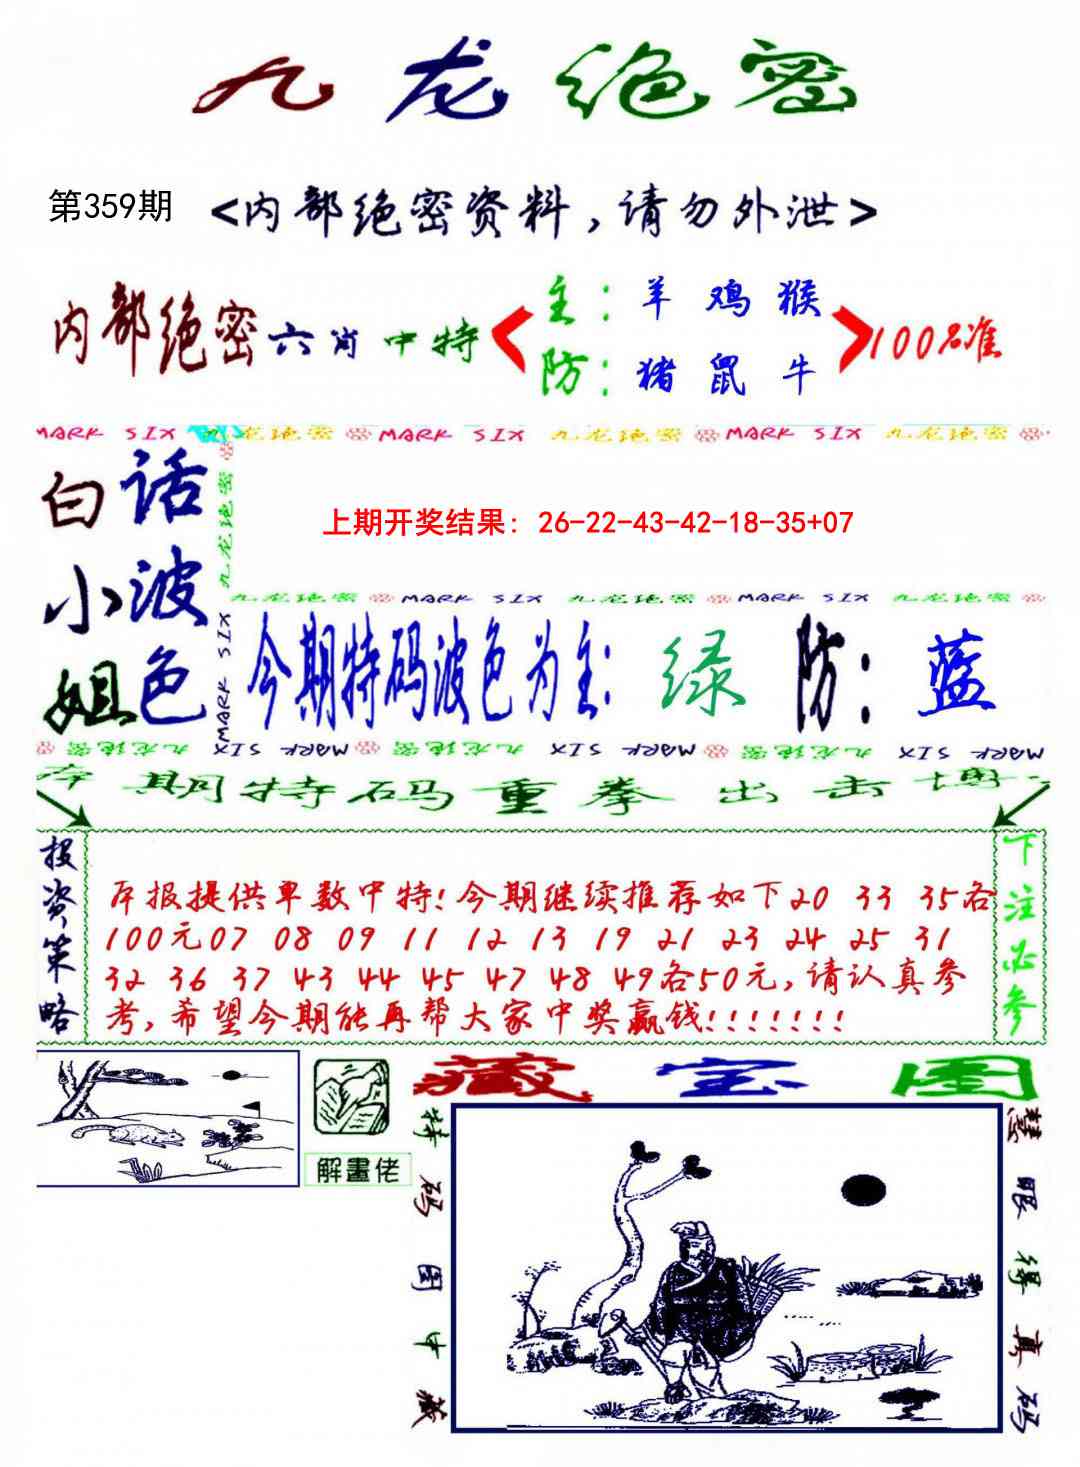 九龙绝密
第359期 <内部绝密资料,请勿外泄>
内部绝密六肖中特
主: 羊 鸡 猴
防: 猪 鼠 牛
100%准
MARK SIX 九龙绝密 MARK SIX 九龙绝密 MARK SIX 九龙绝密
九龙绝密
MARK SIX
白小姐
话波色
上期开奖结果: 26-22-43-42-18-35+07
九龙绝密 MARK SIX 九龙绝密 MARK SIX 九龙绝密
今期特码波色为主: 绿 防: 蓝
九龙绝密 MARK SIX 九龙绝密 MARK SIX 九龙绝密 MARK SIX
本期特码重拳出击博
投资策略
本报提供单数中特!今期继续推荐如下20 33 35各
100元07 08 09 11 12 13 19 21 23 24 25 31
32 36 37 43 44 45 47 48 49各50元,请认真参
考,希望今期能再帮大家中奖赢钱!!!!!!!
下注必参
解畫佬
藏宝图
特码图中藏
慧眼得真码